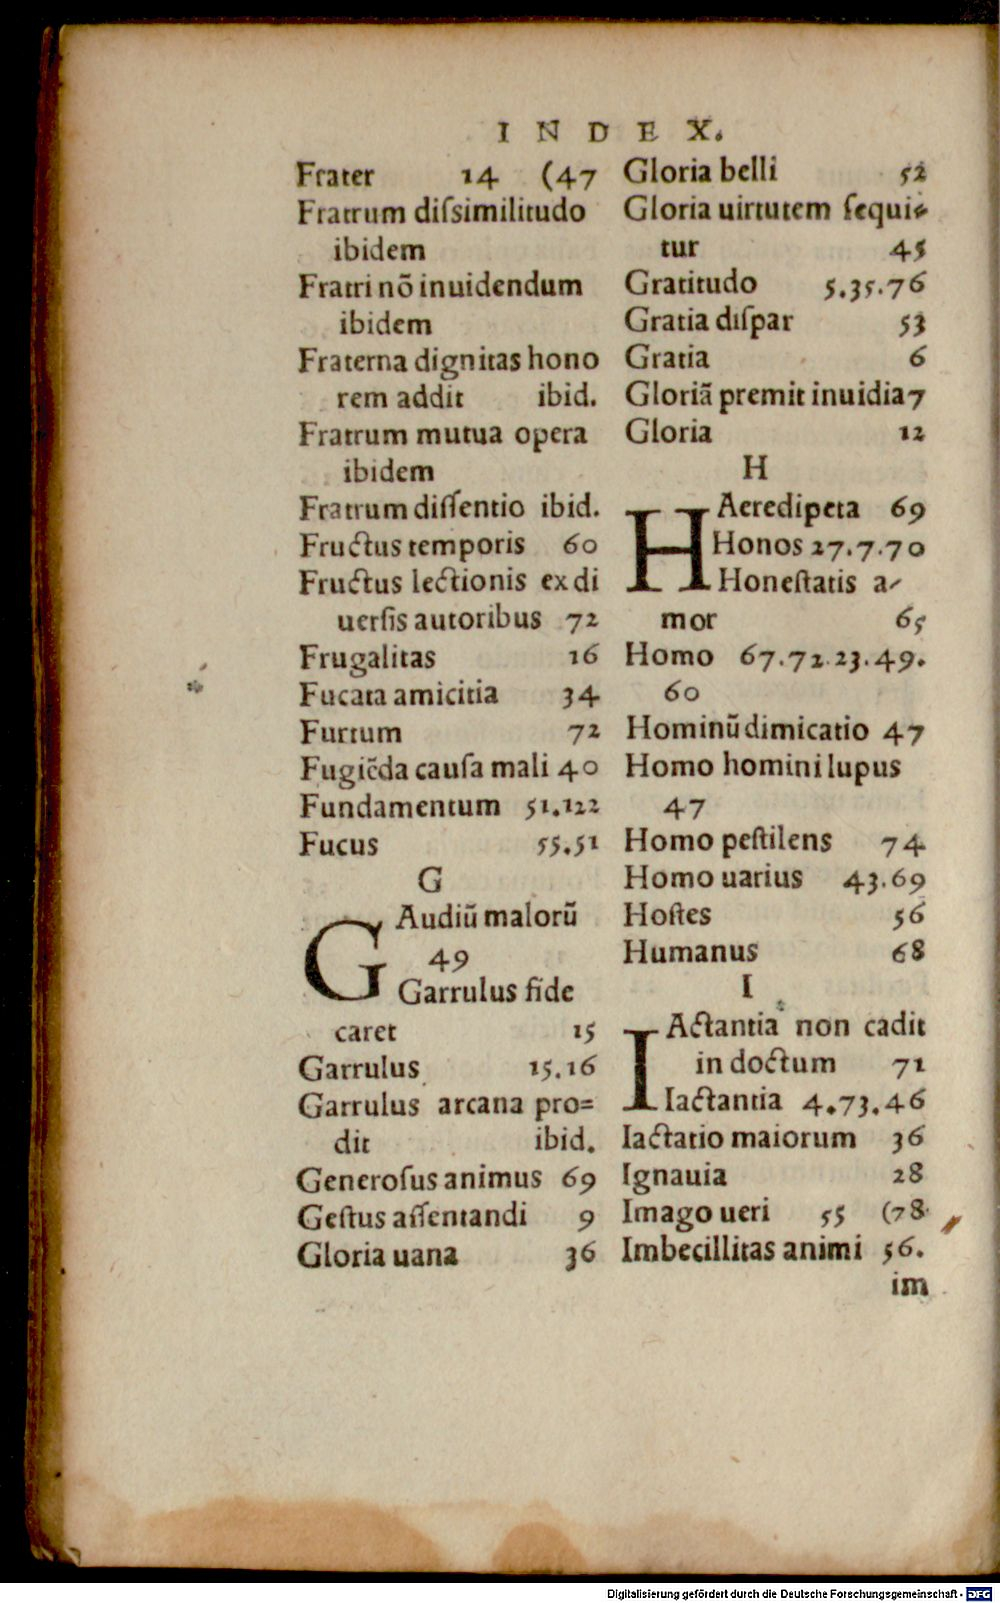 INDEX.
Frater 14 (47
Fratrum diſsimilitudo
ibidem
Fratri nō inuidendum
ibidem
Fraterna dignitas hono
rem addit ibid.
Fratrum mutua opera
ibidem
Fratrum diſſentio ibid.
Fructus temporis 60
Fructus lectionis ex di
uerſis autoribus 72
Frugalitas 16
Fucata amicitia 34
Furtum 72
Fugiēda cauſa mali 40
Fundamentum 51.122
Fucus 55.51
G
GAudiū malorū
49
Garrulus fide
caret 15
Garrulus 15.16
Garrulus arcana pro=
dit ibid.
Generoſus animus 69
Geſtus aſſentandi 9
Gloria uana 36
Gloria belli 52
Gloria uirtutem ſequi-
tur 45
Gratitudo 5.35.76
Gratia diſpar 53
Gratia 6
Gloriā premit inuidia 7
Gloria 12
H
HAeredipeta 69
Honos 27.7.70
Honeſtatis a-
mor 65
Homo 67.72.23.49.
60
Hominū dimicatio 47
Homo homini lupus
47
Homo peſtilens 74
Homo uarius 43.69
Hoſtes 56
Humanus 68
I
IActantia non cadit
in doctum 71
Iactantia 4.73.46
Iactatio maiorum 36
Ignauia 28
Imago ueri 55 (78
Imbecillitas animi 56.
im
Digitalisierung gefördert durch die Deutsche Forschungsgemeinschaft - DFG